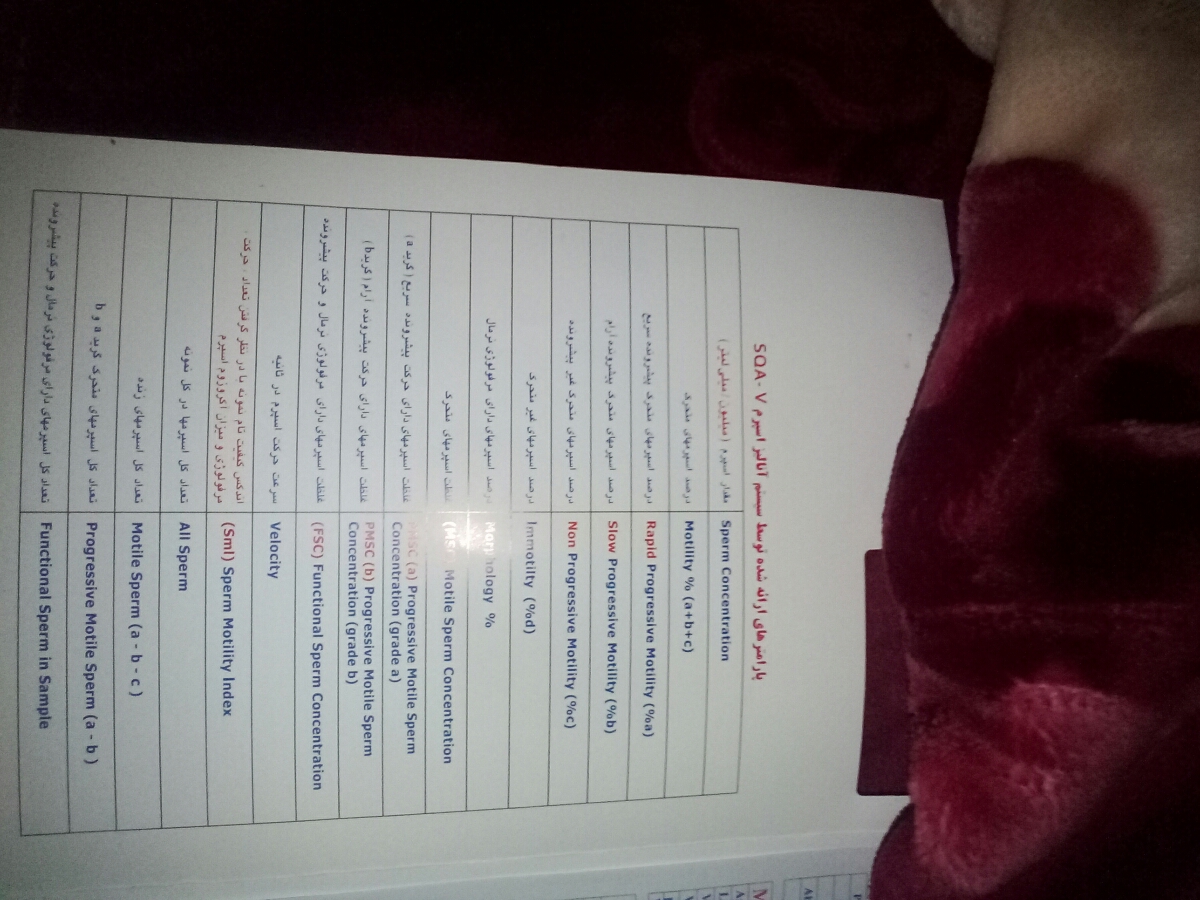 پارامترهای ارائه شده توسط سیستم آنالیز اسپرم SQA- V
Sperm Concentration
مقدار اسپرم ( میلیون / میلی لیتر )
Motility % (a+b+c)
درصد اسپرمهای متحرک
Rapid Progressive Motility (%a)
درصد اسپرمهای متحرک پیشرونده سریع
Slow Progressive Motility (%b)
درصد اسپرمهای متحرک پیشرونده آرام
Non Progressive Motility (%c)
درصد اسپرمهای متحرک غیر پیشرونده
Immotilty (%d)
درصد اسپرمهای غیر متحرک
Morphology %
درصد اسپرمهای دارای مرفولوژی نرمال
(MSC) Motile Sperm Concentration
غلظت اسپرمهای متحرک
PMSC (a) Progressive Motile Sperm
Concentration (grade a)
غلظت اسپرمهای دارای حرکت پیشرونده سریع ( گرید a )
PMSC (b) Progressive Motile Sperm
Concentration (grade b)
غلظت اسپرمهای دارای حرکت پیشرونده آرام ( گرید b )
(FSC) Functional Sperm Concentration
غلظت اسپرمهای دارای مرفولوژی نرمال و حرکت پیشرونده
Velocity
سرعت حرکت اسپرم در ثانیه
(SmI) Sperm Motility Index
اندکس کیفیت تام نمونه با در نظر گرفتن تعداد ، حرکت ،
مرفولوژی و میزان آکروزوم اسپرم
All Sperm
تعداد کل اسپرمها در کل نمونه
Motile Sperm (a - b - c )
تعداد کل اسپرمهای زنده
Progressive Motile Sperm (a - b )
تعداد کل اسپرمهای متحرک گرید a و b
Functional Sperm in Sample
تعداد کل اسپرمهای دارای مرفولوژی نرمال و حرکت پیشرونده